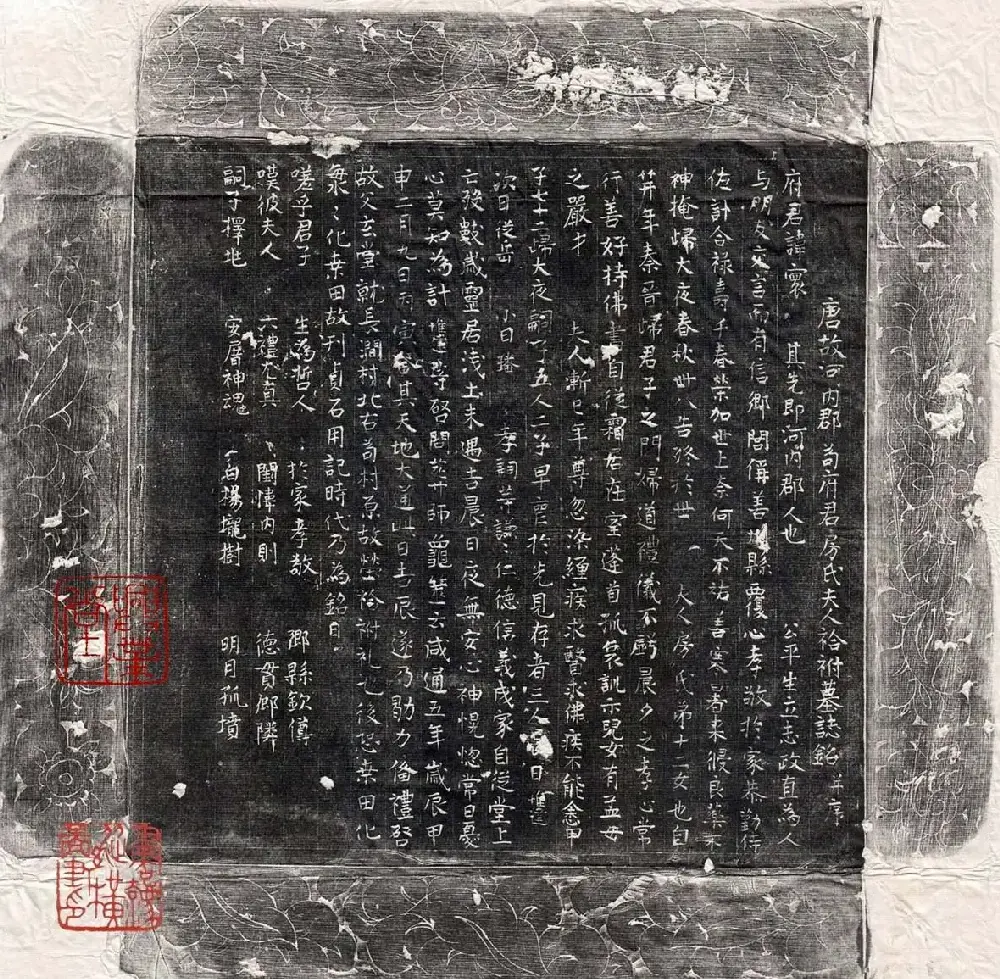 唐故河內郡荀府君房氏夫人祫祔墓誌銘并序
府君諱寰其先即河內郡人也 公平生立志政直為人
与朋友交言而有信鄉閭稱善 縣覆心孝敬於家恭勤
佐計合祿壽千春榮加世上奈何天不祐善寒暑來侵良藥
神掩歸大夜春秋卌八告終於世 夫人房氏弟十二女也自
笄年秦晉歸君子之門婦道禮儀不虧晨夕之孝心常
行善好持佛書自從霜居在室蓬首孤 訓示兒女有孟母
之嚴才 夫人漸已年尊忽染纏疾求醫求佛疾不能愈甲
子七十二歸大夜嗣子五人二子早 於先見存者三人 日
次日從岳 小日 孝詞 仁德信義成家自從堂上
亡歿數歲靈居淺土未遇吉晨日夜無安心神恍惚常日憂
心莫知為計 尋啓問 師龜筮云咸通五年歲辰甲
申二月九日 寅 其天地大道此日吉辰遂乃勠力備禮啓
故父玄堂就長澗村北右荀村原故塋祫祔礼也後恐桒田化
 化桒田故刊貞石用記時代乃為銘曰
嗟乎君子 生為哲人 於家孝敬 鄉縣欽傳
嘆彼夫人 六禮 真 閨幃內則 德貫鄉隣
嗣子擇地 安厝神魂 白楊壠樹 明月孤墳